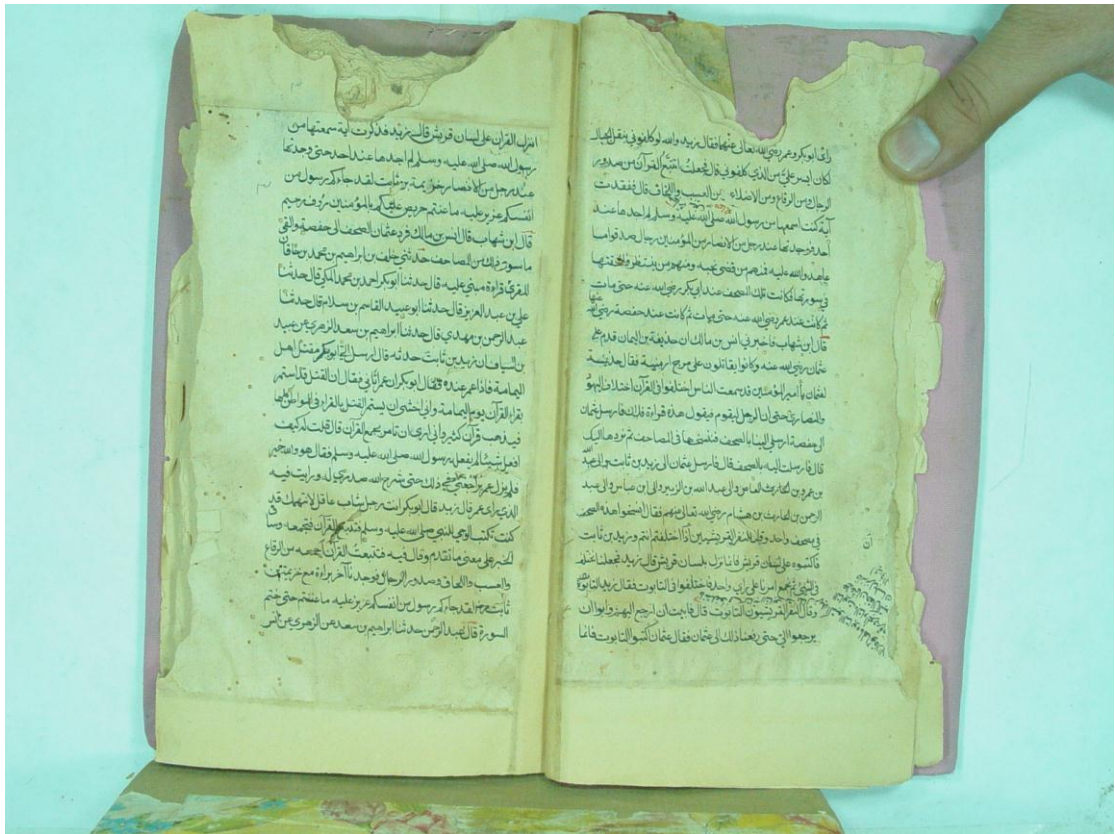 راى ابوبكر وعمر رضي الله تعالى عنهما فقال زيد والله لو كلفوني بنقل الجبال
لكان ايسر علي من الذي كلفوني قال فجعلت اتتبع القرآن من صدور
الرجال ومن الرقاع ومن الاضلاع ومن العسب واللخاف قال ففقدت
آية كنت اسمعها من رسول الله صلى الله عليه وسلم لم اجدها عند
احد فوجدتها عند رجل من الانصار من المؤمنين رجال صدقوا ما
عاهدوا الله عليه فمنهم من قضى نحبه ومنهم من ينتظر فالحقتها
في سورتها فكانت تلك الصحف عند ابي بكر رضي الله عنه حتى مات
ثم كانت عند عمر رضي الله عنه حتى مات ثم كانت عند حفصة رضي الله عنها
قال ابن شهاب فاخبرني انس بن مالك ان حذيفة بن اليمان قدم على
عثمان رضي الله عنه وكانوا يقاتلون على مرج ارمينية فقال حذيفة
لعثمان يا امير المؤمنين قد سمعت الناس اختلفوا في القرآن اختلاف اليهود
والنصارى حتى ان الرجل ليقوم فيقول هذه قراءة فلان فارسل عثمان
الى حفصة ارسلي الينا بالصحف فننسخها في المصاحف ثم نردها اليك
قال فارسلت اليه بالصحف قال فارسل عثمان الى زيد بن ثابت والى عبد الله
بن عمرو بن العاص والى عبد الله بن الزبير والى ابن عباس والى عبد
الرحمن بن الحارث بن هشام رضي الله تعالى عنهم فقال انسخوا هذه الصحف
في مصحف واحد وقال للنفر القرشيين ان اختلفتم انتم وزيد بن ثابت
فاكتبوه على لسان قريش فانما نزل بلسان قريش قال زيد فجعلنا نختلف
في الشيء ثم نجمع امرنا على راي واحد فاختلفوا في التابوت فقال زيد التابوه
وقال النفر القرشيون التابوت قال فابيت ان ارجع اليهم وابوا ان
يرجعوا الي حتى رفعنا ذلك الى عثمان فقال عثمان اكتبوا التابوت فانما
انزل القرآن على لسان قريش قال زيد فذكرت آية سمعتها من
رسول الله صلى الله عليه وسلم لم اجدها عند احد حتى وجدتها
عند رجل من الانصار خزيمة بن ثابت لقد جاءكم رسول من
انفسكم عزيز عليه ما عنتم حريص عليكم بالمؤمنين رؤف رحيم
قال ابن شهاب قال انس بن مالك فرد عثمان الصحف الى حفصة والقى
ما سوى ذلك من المصاحف حدثني خلف بن ابراهيم بن محمد بن خاقان
المقرئ قراءة مني عليه قال حدثنا ابو بكر احمد بن محمد المكي قال حدثنا
علي بن عبد العزيز قال حدثنا ابو عبيد القاسم بن سلام قال حدثنا
عبد الرحمن بن مهدي قال حدثنا ابراهيم بن سعد عن الزهري عن عبيد
بن السباق ان زيد بن ثابت حدثه قال ارسل الي ابوبكر مقتل اهل
اليمامة فاذا عمر عنده فقال ابوبكر ان عمر اتاني فقال ان القتل قد استحر
بقراء القرآن يوم اليمامة واني اخشى ان يستحر القتل بالقراء في المواطن كلها
فيذهب قرآن كثير واني ارى ان تامر بجمع القرآن قال قلت له كيف
افعل شيئا لم يفعله رسول الله صلى الله عليه وسلم فقال هو والله خير
فلم يزل عمر يراجعني في ذلك حتى شرح الله صدري له ورايت فيه
الذي راى عمر قال زيد قال ابوبكر انت رجل شاب عاقل لا نتهمك قد
كنت تكتب الوحي للنبي صلى الله عليه وسلم فتتبع القرآن فاجمعه وساق
الخبر على معنى ما تقدم وقال فيه فتتبعت القرآن اجمعه من الرقاع
والعسب واللخاف وصدور الرجال فوجدت آخر براءة مع خزيمة بن
ثابت لقد جاءكم رسول من انفسكم عزيز عليه ما عنتم حتى ختم
السورة قال عبد الرحمن حدثنا ابراهيم بن سعد عن الزهري عن انس